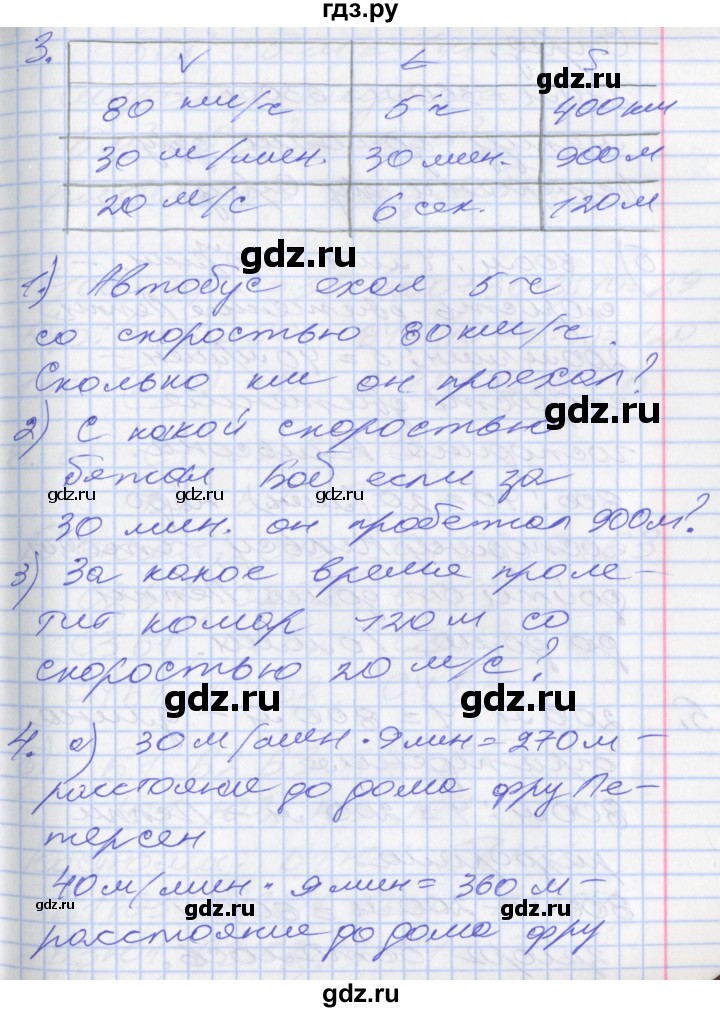 гдз.ру
3.
V t S
80 км/ч 5 ч 400 км
30 м/мин. 30 мин. 900 м
20 м/с 6 сек. 120 м
gdz.ru
gdz.ru
1.) Автобус ехал 5 ч
со скоростью 80 км/ч.
Сколько км он проехал?
gdz.ru
2) С какой скоростью
бежал Боб если за
gdz.ru gdz.ru gdz.ru
30 мин. он пробежал 900 м?
3) За какое время проле-
тит комар 120 м со
скоростью 20 м/с?
gdz.ru gdz.ru
4. а) 30 м/мин · 9 мин = 270 м -
расстояние до дома фру Пе-
терсен
40 м/мин · 9 мин = 360 м -
gdz.ru gdz.ru gdz.ru
расстояние до дома фру
gdz.ru